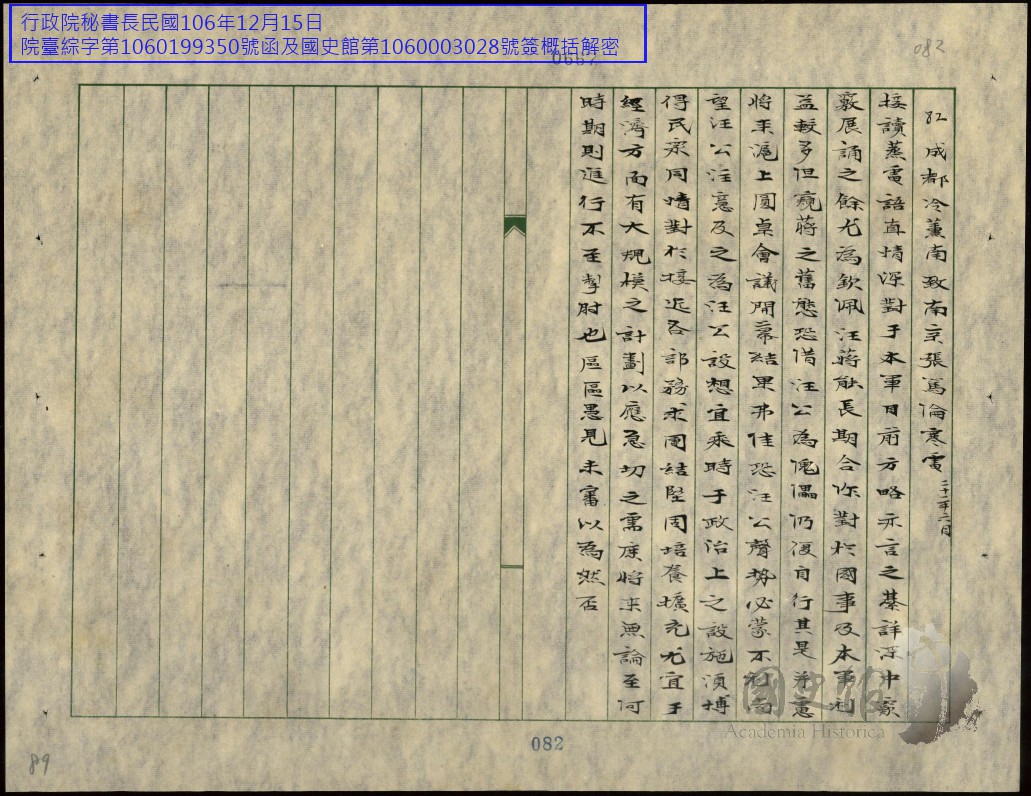 行政院秘書長民國106年12月15日
院臺綜字第1060199350號函及國史館第1060003028號簽概括解密
0667
082
82 成都冷薰南致南京張篤倫寒電 二十一年六月
接讀蒸電語直情深對于本軍目前方略亦言之綦詳深中窾
竅展誦之餘尤為欽佩汪蔣能長期合作對於國事及本軍利
益較多但窺蔣之舊態恐借汪公為傀儡仍復自行其是并慮
將來滬上圓桌會議開幕結果弗佳恐汪公聲勢必蒙不利尚
望汪公注意及之為汪公設想宜乘時于政治上之設施須博
得民眾同情對於接近各部務求團結堅固培養擴充尤宜于
經濟方面有大規模之計劃以應急切之需庶將來無論至何
時期則進行不至掣肘也區區愚見未審以為然否
國史館
Academia Historica
082
89